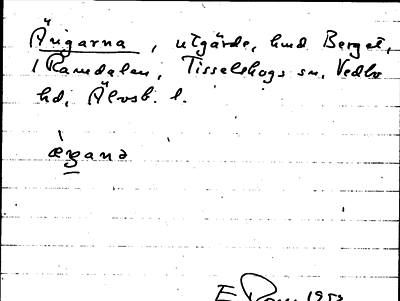 Ängarna, utgärde, hmd Berget,
1 Ramdalen, Tisselskogs sn, Vedbo
hd, Älvsb. l.
ægana
E